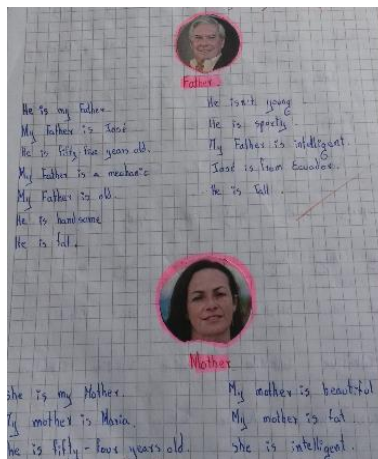 Father.
He is my Father.
My Father is José
He is fifty-five years old.
My Father is a mechanic
My Father is old.
He is handsome
He is fat.
He isn't young
He is sporty.
My Father is intelligent.
José is from Ecuador.
He is Tall.
Mother
she is my Mother.
My mother is Maria.
he is fifty-four years old.
My mother is beautiful
My mother is fat.
she is intelligent.